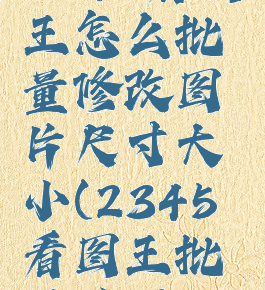 王怎么批
量修改图
片尺寸大
小(2345
看图王批